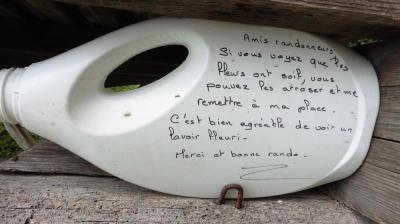 Amis randonneurs
Si vous voyez que les
fleurs ont soif, vous
pouvez les arroser et me
remettre à ma place.
C'est bien agréable de voir un
lavoir fleuri.
Merci et bonne rando.